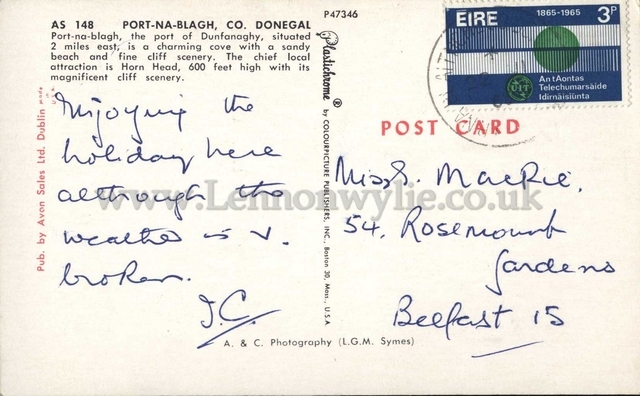 AS 148 PORT-NA-BLAGH, CO. DONEGAL
Port-na-blagh, the port of Dunfanaghy, situated
2 miles east, is a charming cove with a sandy
beach and fine cliff scenery. The chief local
attraction is Horn Head, 600 feet high with its
magnificent cliff scenery.
Enjoying the
holiday here
although the
weather is v.
broken.
J.C.
Pub. by Avon Sales Ltd. Dublin made in U.S.A.
P47346
Plastichrome ® by COLOURPICTURE PUBLISHERS, INC., Boston 30, Mass., U.S.A
A. & C. Photography (L.G.M. Symes)
ÉIRE 1865-1965 3p
UIT
An tAontas
Telechumarsáide
Idirnáisiúnta
POST CARD
Miss. MacRie.
54, Rosemount
Gardens
Belfast 15
www.Lennonwylie.co.uk